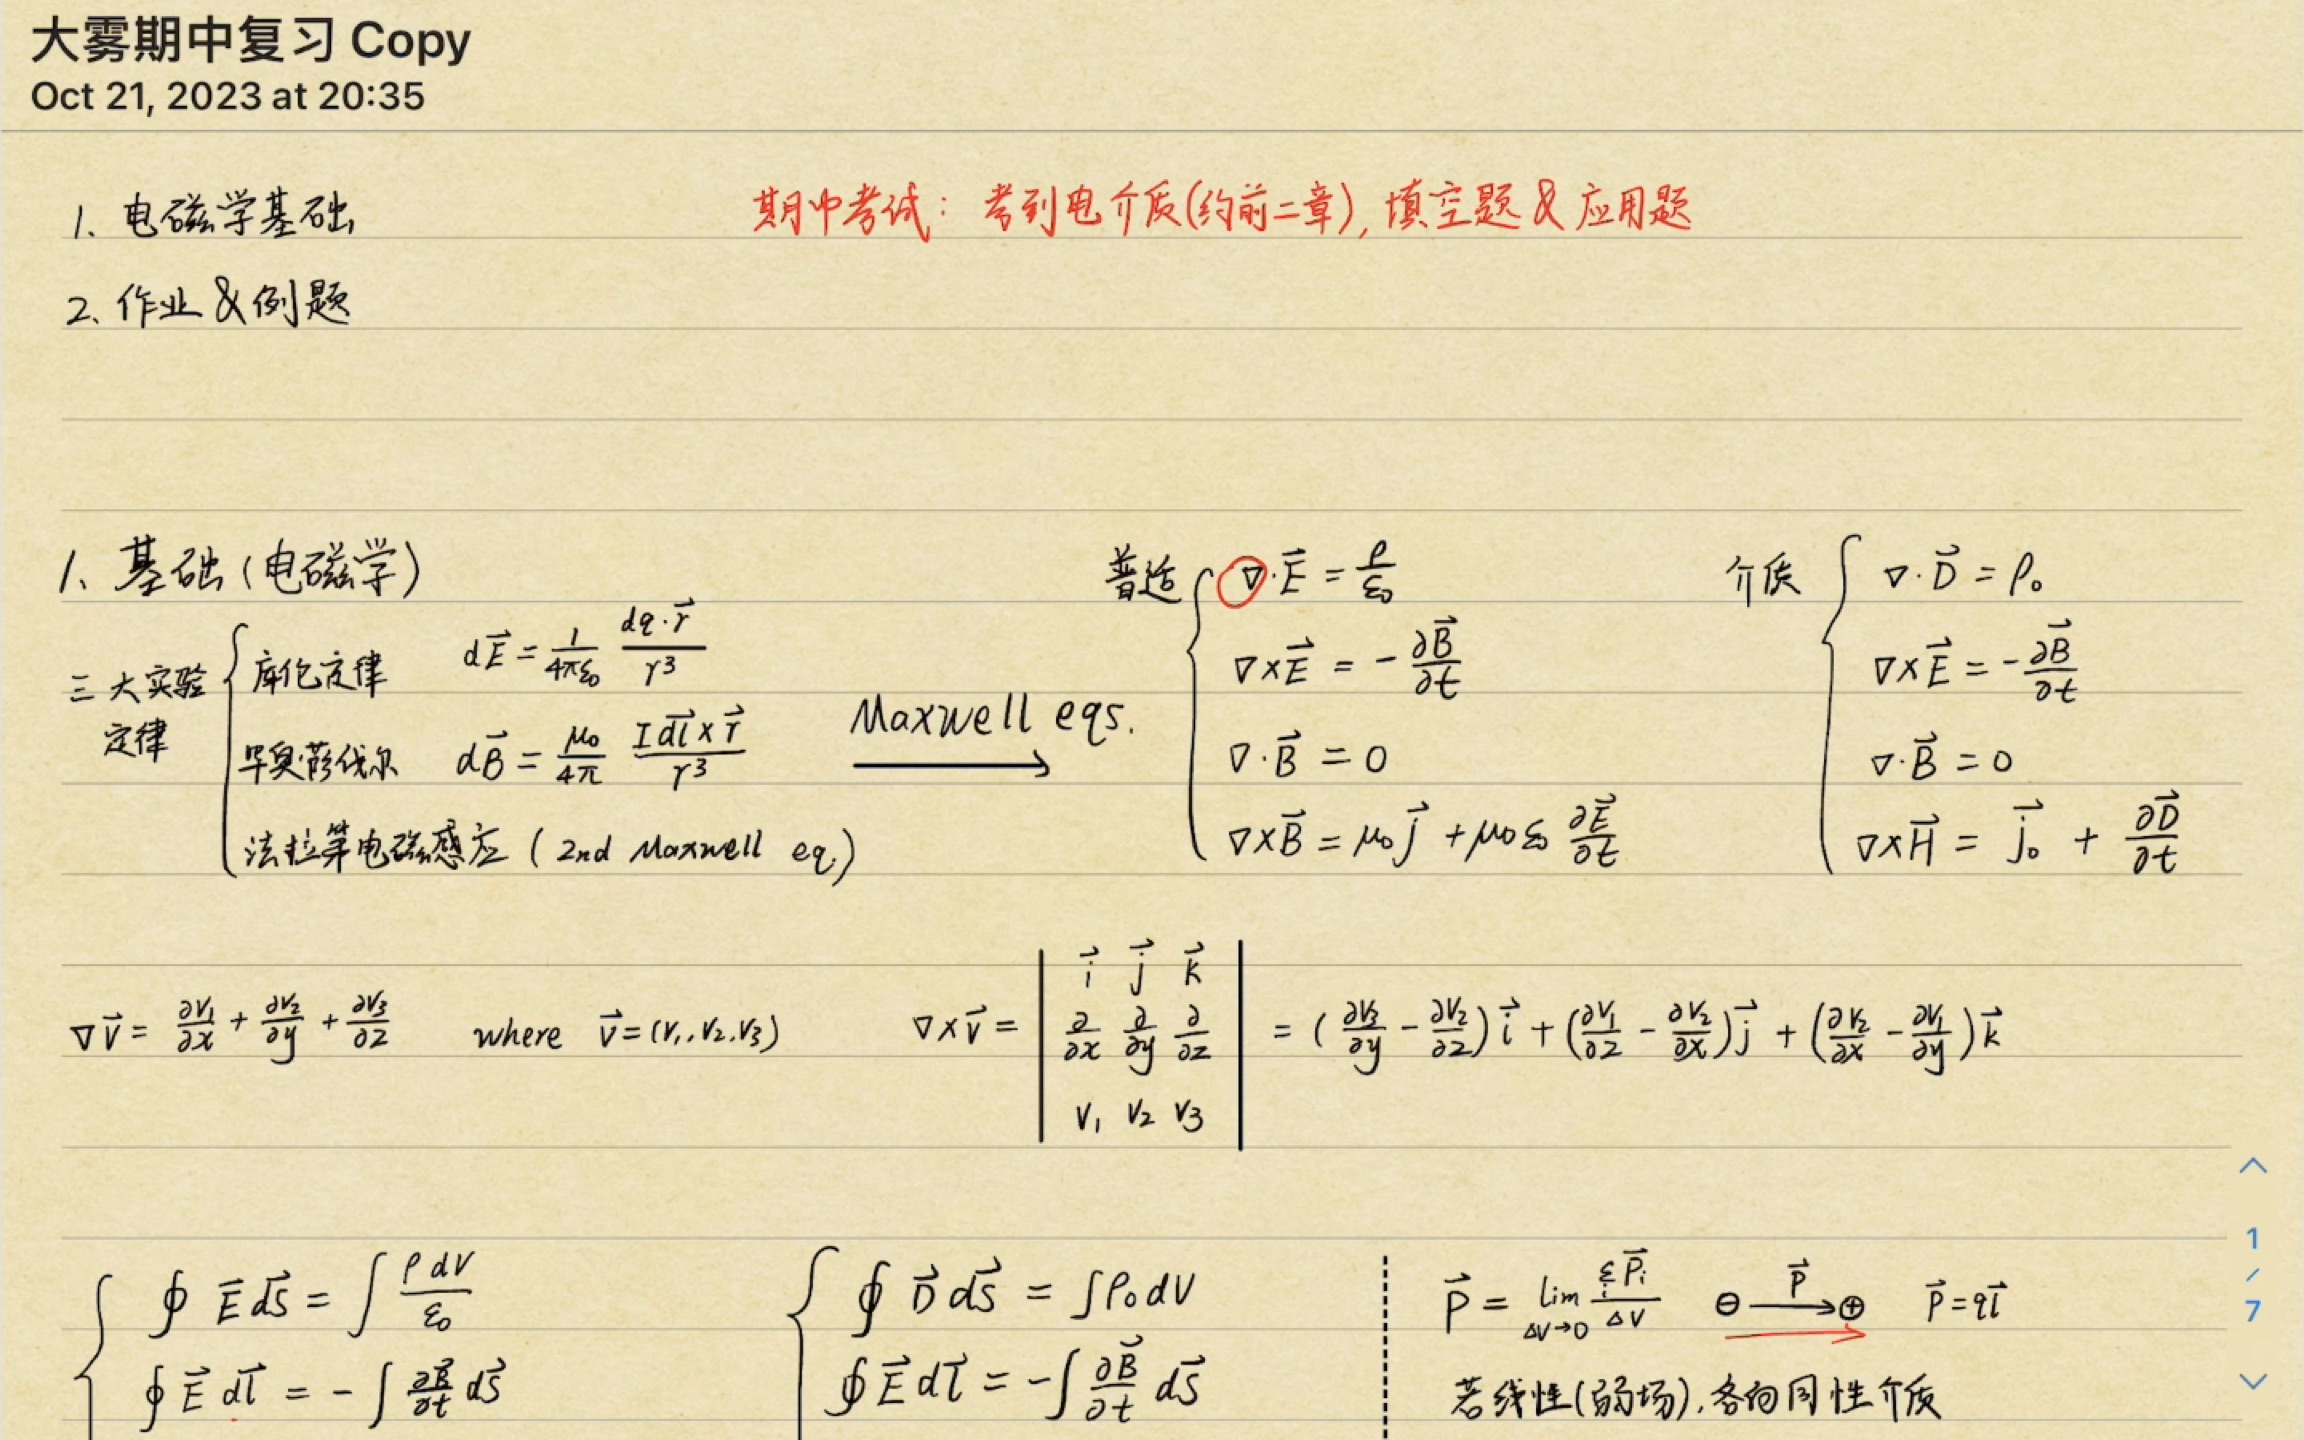 大雾期中复习 Copy
Oct 21, 2023 at 20:35
1. 电磁学基础
期中考试：考到电介质(约前二章), 填空题 & 应用题
2. 作业 & 例题
1. 基础 (电磁学)
三大实验定律
库伦定律 d\vec{E} = \frac{1}{4πε_0} \frac{dq·\vec{r}}{r^3}
毕奥·萨伐尔 d\vec{B} = \frac{μ_0}{4π} \frac{I\vec{dl}×\vec{r}}{r^3}
法拉第电磁感应 (2nd Maxwell eq.)
Maxwell eqs.
普适
∇·\vec{E} = \frac{ρ}{ε_0}
∇×\vec{E} = -\frac{∂\vec{B}}{∂t}
∇·\vec{B} = 0
∇×\vec{B} = μ_0\vec{j} + μ_0ε_0\frac{∂\vec{E}}{∂t}
介质
∇·\vec{D} = ρ_0
∇×\vec{E} = -\frac{∂\vec{B}}{∂t}
∇·\vec{B} = 0
∇×\vec{H} = \vec{j}_0 + \frac{∂\vec{D}}{∂t}
∇\vec{V} = \frac{∂V_1}{∂x} + \frac{∂V_2}{∂y} + \frac{∂V_3}{∂z} where \vec{V} = (V_1, V_2, V_3)
∇×\vec{V} = \begin{vmatrix} \vec{i} & \vec{j} & \vec{k} \\ \frac{∂}{∂x} & \frac{∂}{∂y} & \frac{∂}{∂z} \\ V_1 & V_2 & V_3 \end{vmatrix} = (\frac{∂V_3}{∂y} - \frac{∂V_2}{∂z})\vec{i} + (\frac{∂V_1}{∂z} - \frac{∂V_2}{∂x})\vec{j} + (\frac{∂V_2}{∂x} - \frac{∂V_1}{∂y})\vec{k}
∮ \vec{E} d\vec{s} = ∫ \frac{ρ dV}{ε_0}
∮ \vec{E} d\vec{l} = -∫ \frac{∂\vec{B}}{∂t} d\vec{s}
∮ \vec{D} d\vec{s} = ∫ρ_0 dV
∮ \vec{E} d\vec{l} = -∫ \frac{∂\vec{B}}{∂t} d\vec{s}
\vec{P} = \lim_{ΔV→0} \frac{\sum_i \vec{P}_i}{ΔV} ⊖ \xrightarrow{\vec{P}} ⊕ \vec{P} = q\vec{l}
若线性(弱场), 各向同性介质
1
/
7